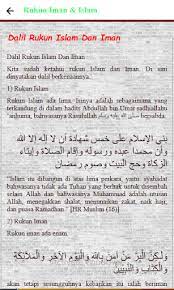 Rukun Iman & Islam
Dalil Rukun Islam Dan Iman
Dalil Rukun Islam Dan Iman
Kita sudah ketahui rukun Islam dan iman. Di sini
dinyatakan dalil berkenaannya.
1) Rukun Islam
Rukun Islam ada lima. Ianya adalah sebagaimana yang
terkandung di dalam hadits Abdullah bin Umar radhiallahu
'anhuma, bahwasanya Rasulullah صلى الله عليه وسلم bersabda:
بني الإسلام على خمس شهادة أن لا إله إلا الله
وأن محمدا عبده ورسوله وإقام الصلاة وإيتاء
الزكاة وحج البيت وصوم رمضان
"Islam itu dibangun di atas lima perkara, yaitu: syahadat
bahwasanya tidak ada Tuhan yang berhak untuk disembah
selain Allah dan bahwasanya Muhammad adalah utusan
Allah, menegakkan shalat, menunaikan zakat, naik haji,
dan puasa Ramadhan." [HR Muslim (16)]
2) Rukun Iman
Rukun iman ada enam.
وَلَكِنَّ الْبِرَّ مَنْ آمَنَ بِاللَّهِ وَالْيَوْمِ الْآخِرِ وَالْمَلَائِكَةِ
"akan tetapi sesungguhnya kebajikan itu ialah beriman